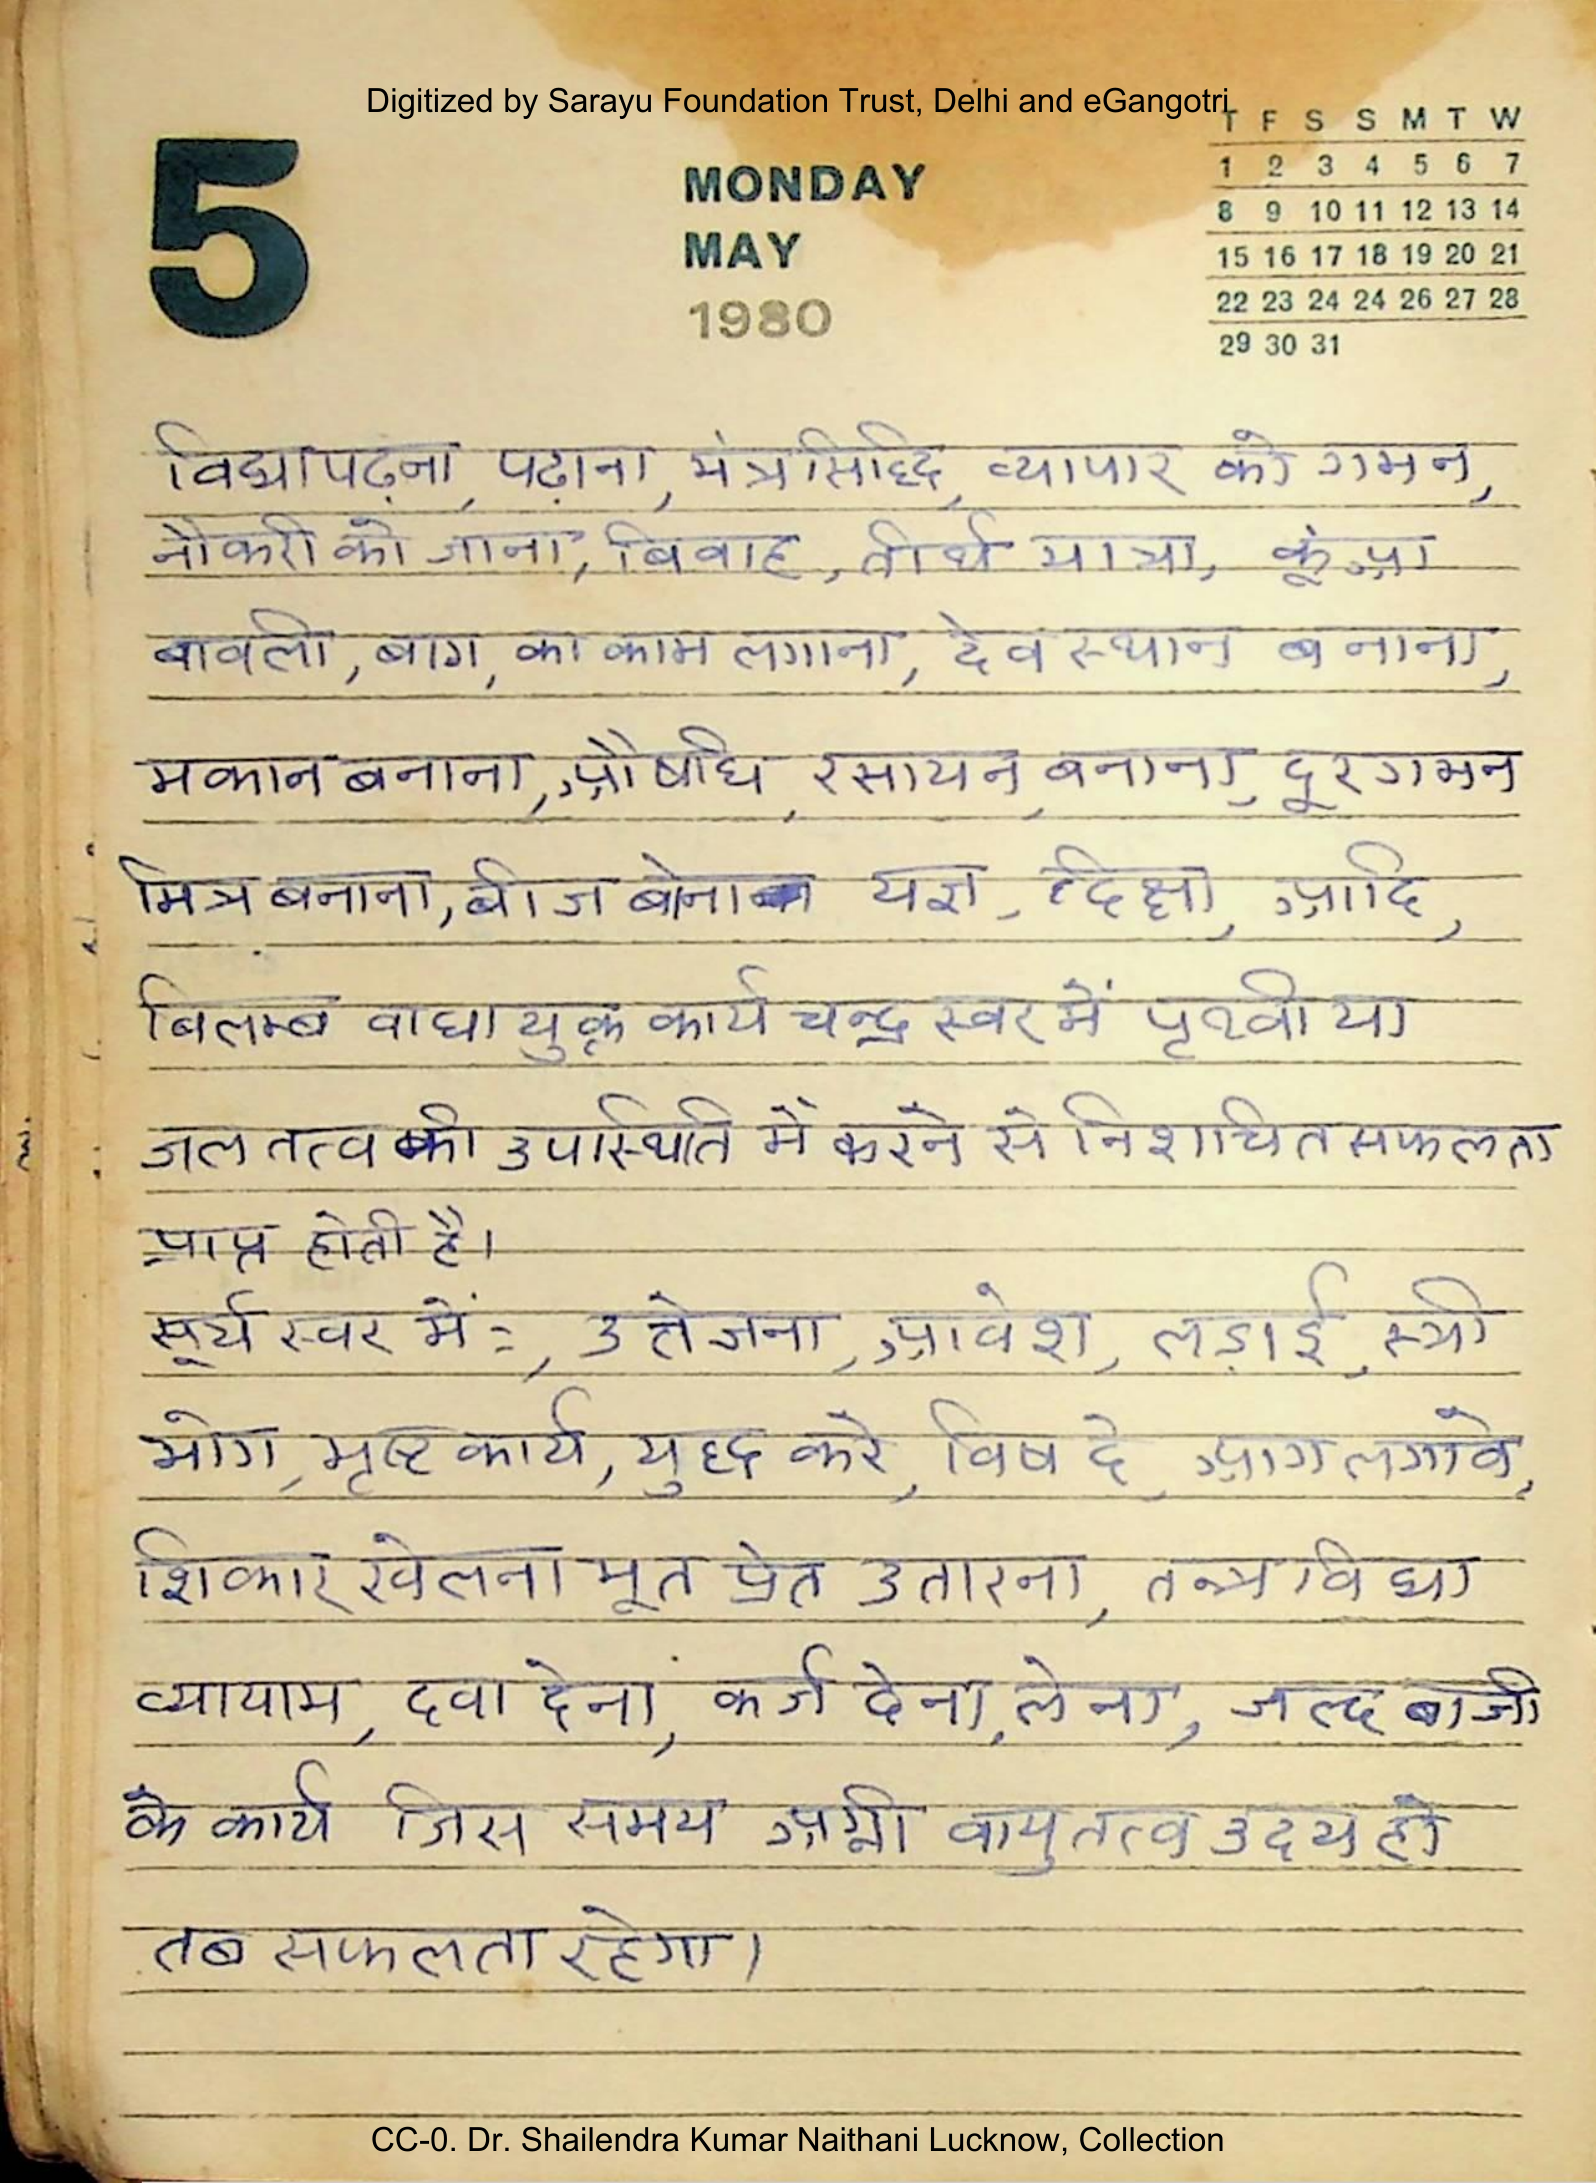 Digitized by Sarayu Foundation Trust, Delhi and eGangotri
5
MONDAY
MAY
1980
T F S S M T W
1 2 3 4 5 6 7
8 9 10 11 12 13 14
15 16 17 18 19 20 21
22 23 24 24 26 27 28
29 30 31
विद्या पढ़ना, पढ़ाना, मंत्र सिद्धि, व्यापार को गमन,
नौकरी को जाना, बिवाह, तीर्थ यात्रा, कूंआ
बावली, बाग, का काम लगाना, देव स्थान बनाना,
मकान बनाना, औषधि, रसायन, बनाना, दूर गमन
मित्र बनाना, बीज बोना यज्ञ, दिक्षा, आदि,
बिलम्ब वाधा युक्त कार्य चन्द्र स्वर में पृथ्वी या
जल तत्व की उपस्थिति में करने से निशचित सफलता
प्राप्त होती है।
सूर्य स्वर में:-, उत्तेजना, आवेश, लड़ाई, स्त्री
भोग, भृष्ट कार्य, युद्ध करे, विष दे, आग लगावे,
शिकार खेलना भूत प्रेत उतारना, तन्त्र विद्या
व्यायाम, दवा देना, कर्ज देना, लेना, जल्द बाजी
के कार्य जिस समय अग्नी वायु तत्व उदय हो
तब सफलता रहेगा।
CC-0. Dr. Shailendra Kumar Naithani Lucknow, Collection